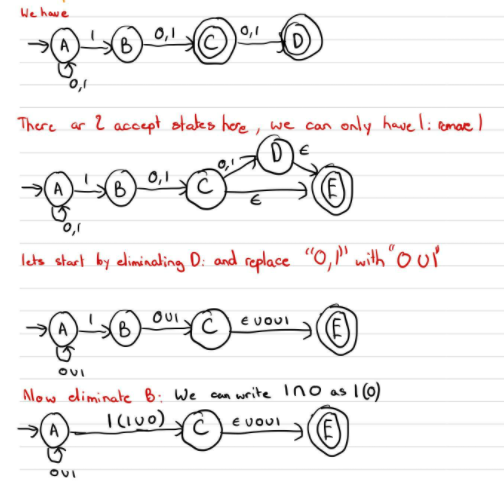 We have
A 1 B 0,1 C 0,1 D
0,1
There ar 2 accept states here, we can only have 1: remove 1
A 1 B 0,1 C 0,1 D ε E
ε
0,1
lets start by eliminating D: and replace "0,1" with "0U1"
A 1 B 0U1 C εU0U1 E
0U1
Now eliminate B: We can write 1∩0 as 1(0)
A 1(1U0) C εU0U1 E
0U1